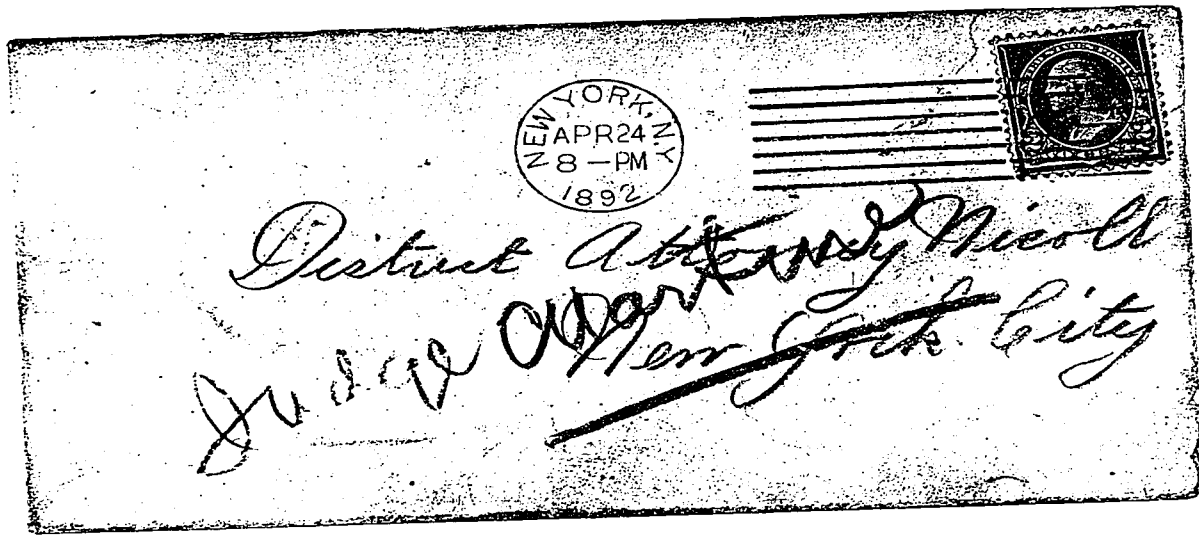 NEW YORK, N.Y.
APR 24
8 - PM
1892
District Attorney Nicoll
New York City
Judge